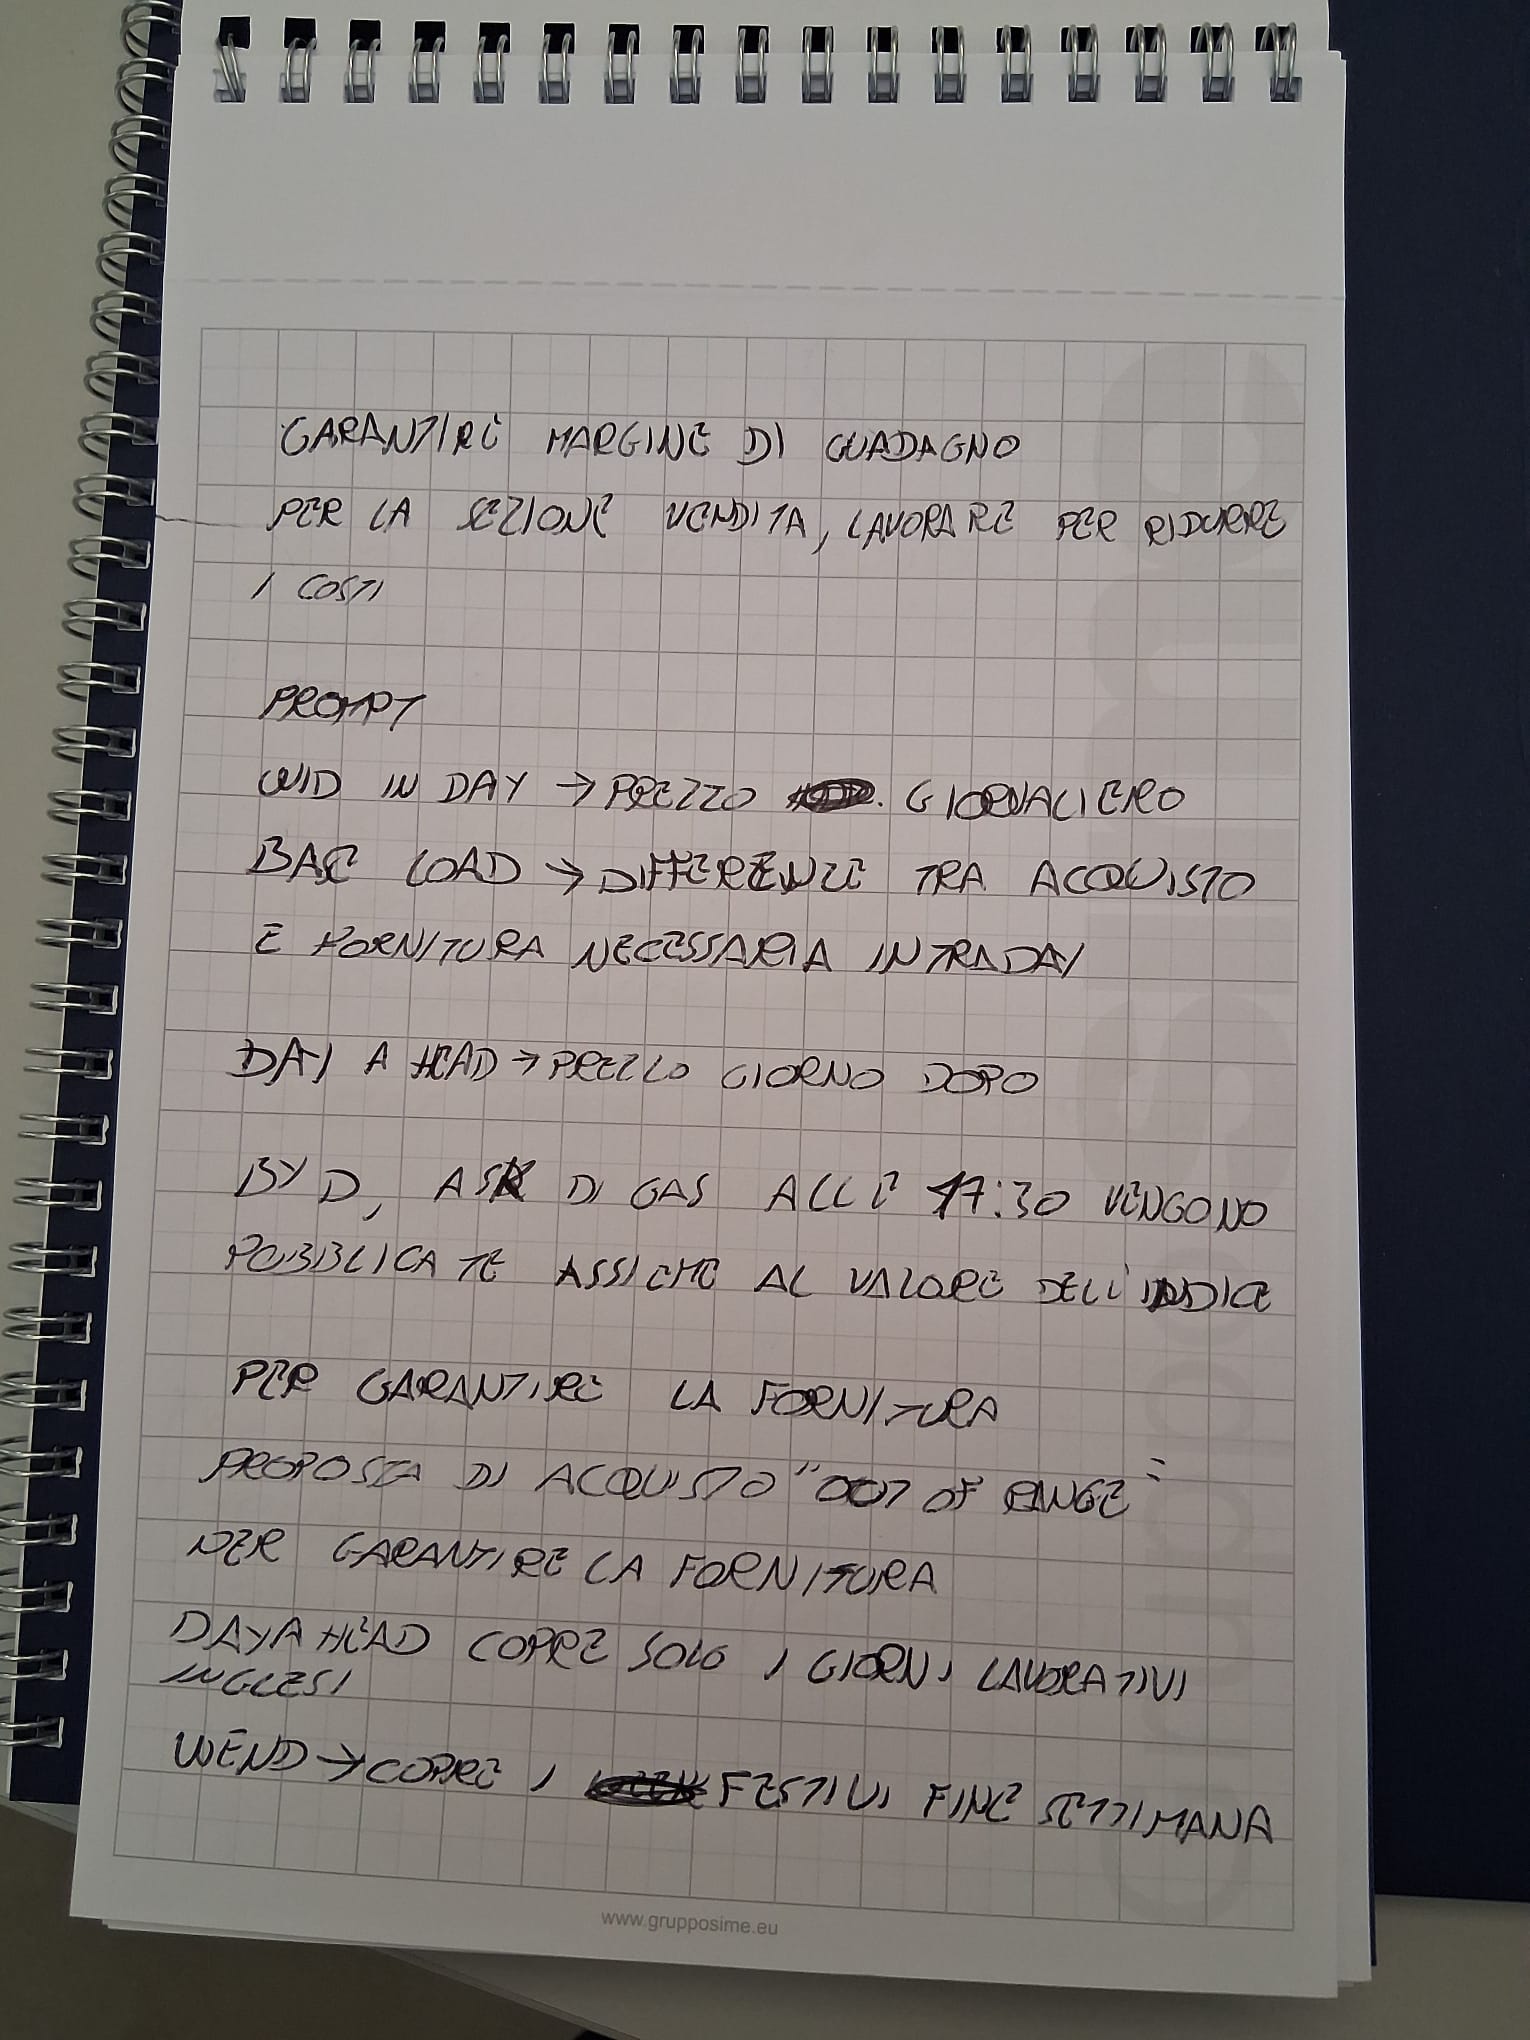 GARANTIRE MARGINE DI GUADAGNO
PER LA SEZIONE VENDITA, LAVORARE PER RIDURRE
I COSTI
PROMPT
WID IN DAY → PREZZO GIORNALIERO
BASE LOAD → DIFFERENZE TRA ACQUISTO
E FORNITURA NECESSARIA INTRADAY
DAY A HEAD → PREZZO GIORNO DOPO
BYD, ASK DI GAS ALLE 17:30 VENGONO
PUBBLICATE ASSIEME AL VALORE DELL'INDICE
PER GARANTIRE LA FORNITURA
PROPOSTA DI ACQUISTO "OUT OF RANGE"
PER GARANTIRE LA FORNITURA
DAYAHEAD COPRE SOLO I GIORNI LAVORATIVI
INGLESI
WEND → COPRE I FESTIVI FINE SETTIMANA
www.grupposime.eu
GruppoSime